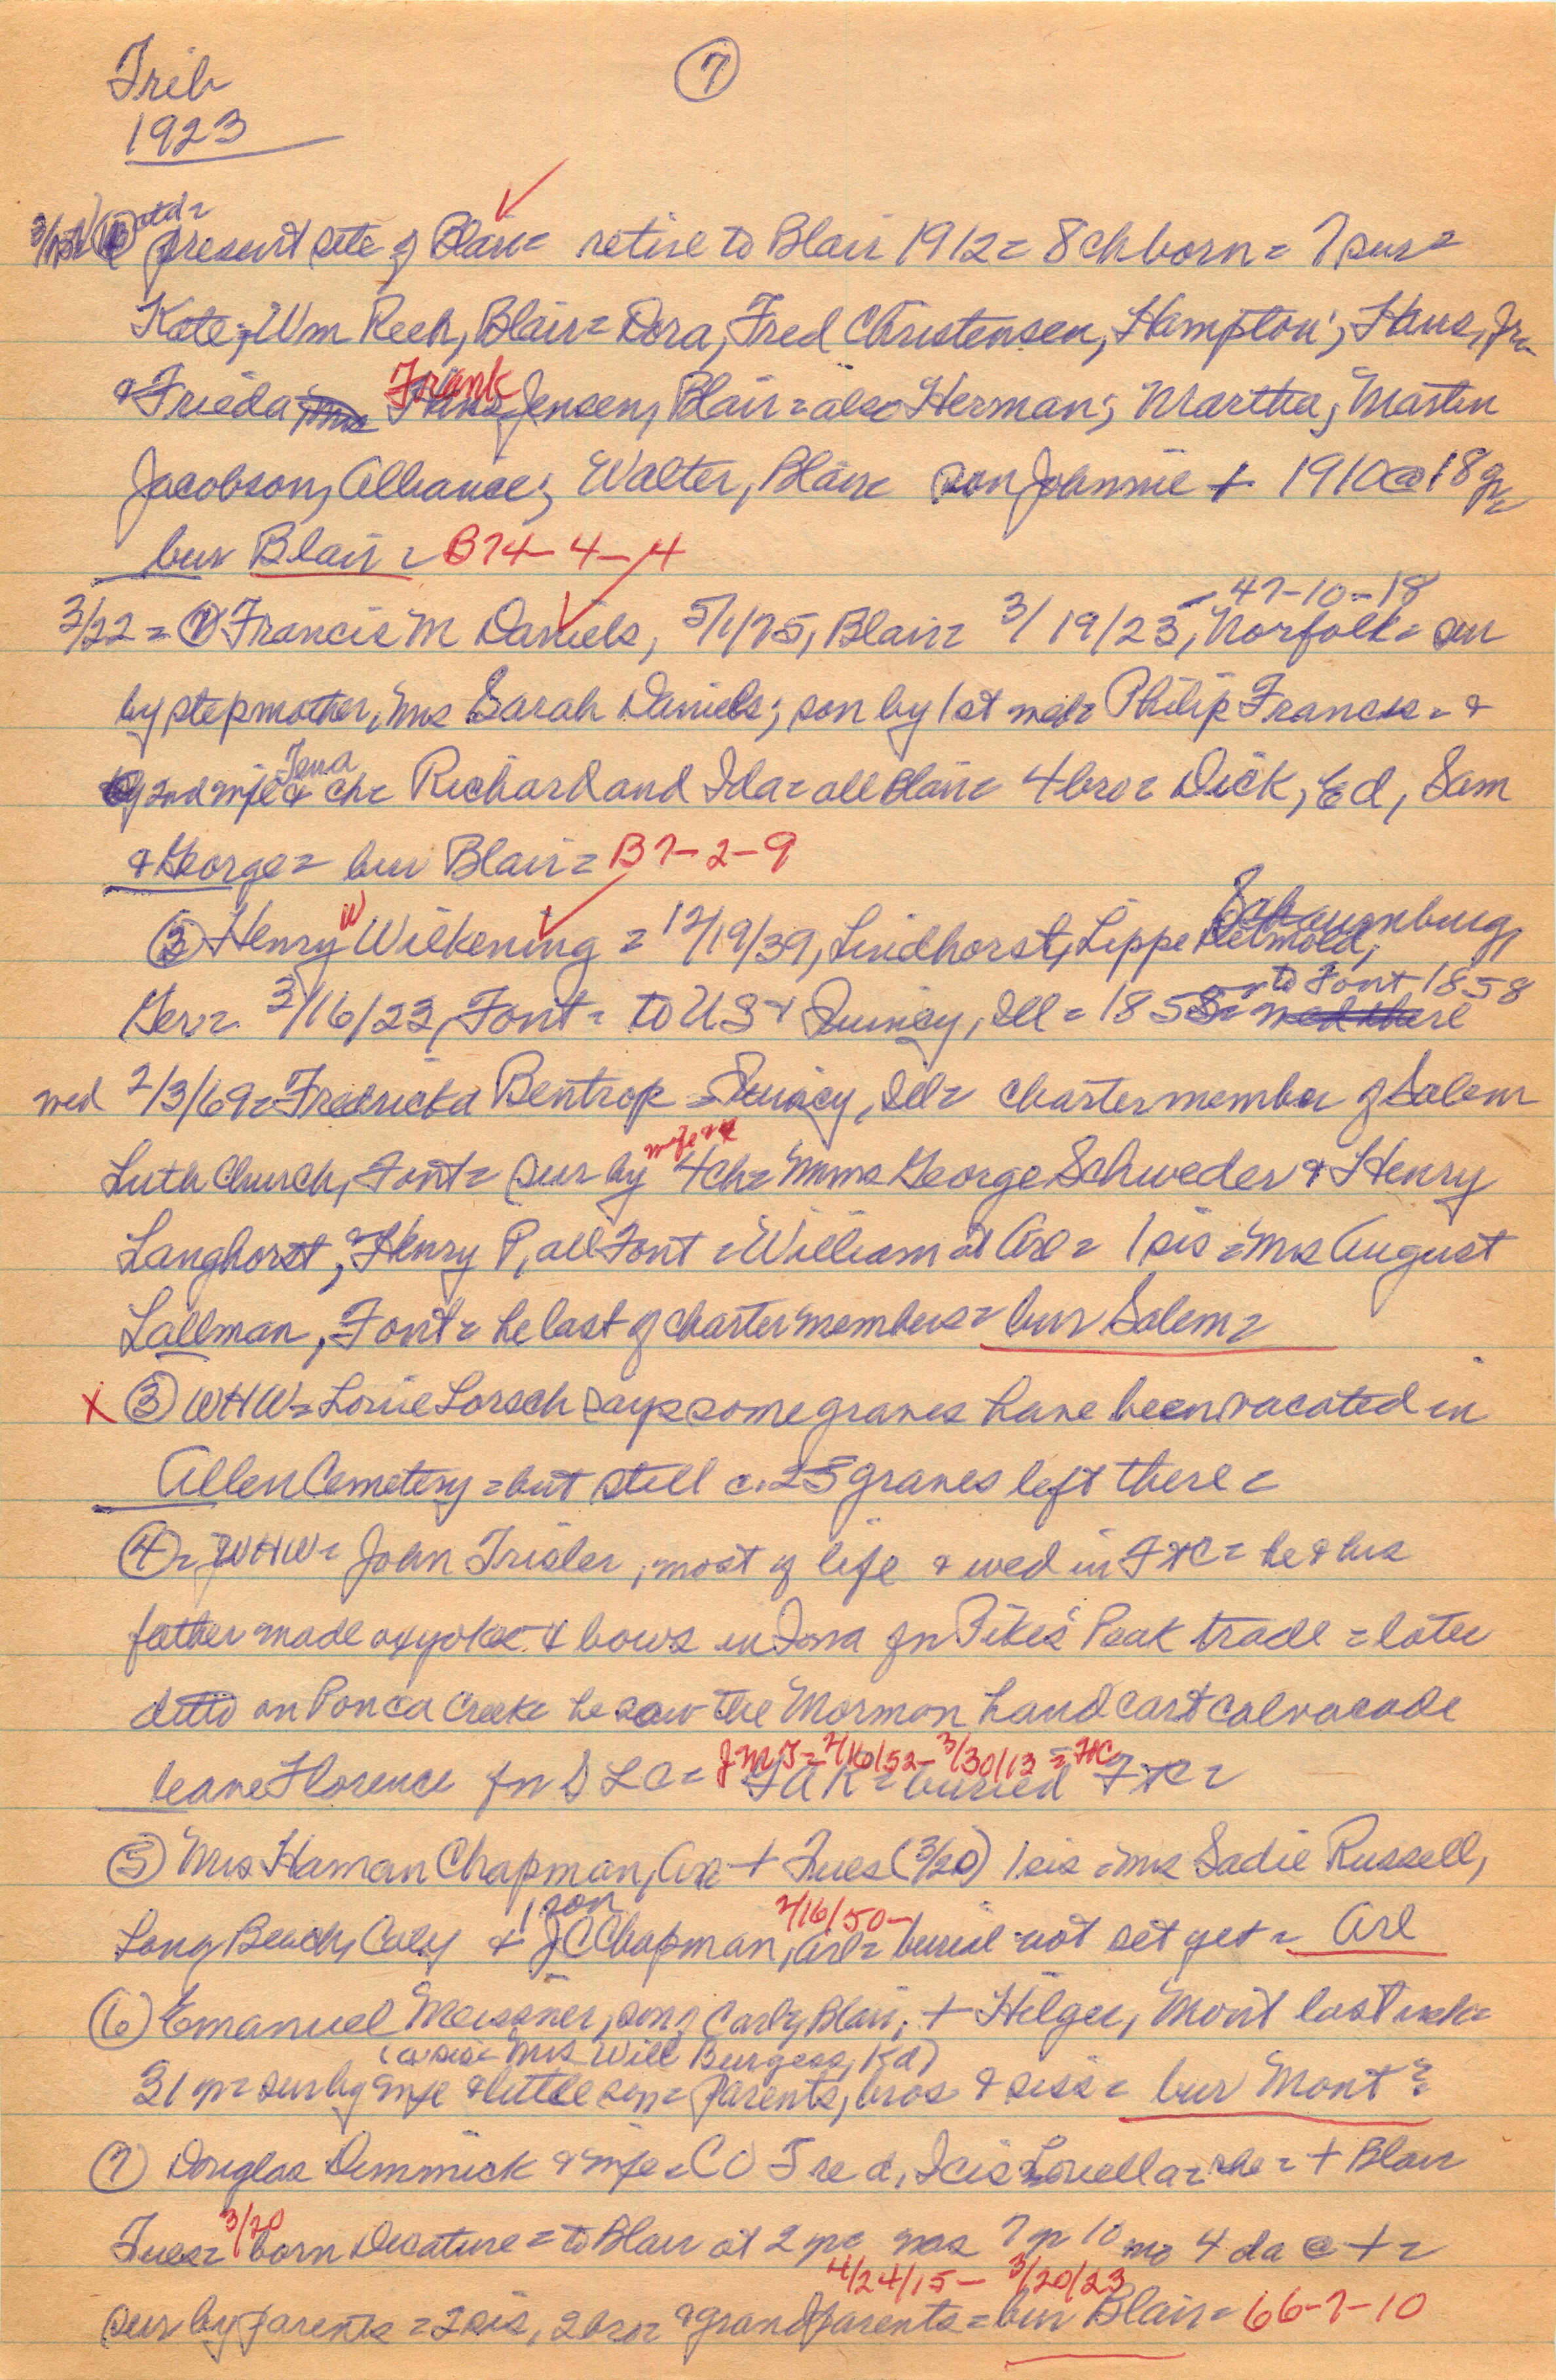 Trib
7
1923
present site of Blair = retire to Blair 1912 = 8 ch born = 7 sur =
Kate, Wm Rech, Blair = Dora, Fred Christensen, Hampton; Hans, Jr
& Frieda, Frank Jensen, Blair = also Herman; Martha, Martin
Jacobson, Alliance; Walter, Blair son Johnnie + 1910 @ 18 yr
bur Blair = B74-4-4
3/22 = Francis M Daniels, 5/1/75, Blair = 3/19/23, Norfolk = sur
- 47-10-18
by stepmother, Mrs Sarah Daniels; son by 1st wed = Philip Francis = &
by 2nd wife Iowa & ch = Richard and Ida = all Blair = 4 bro = Dick, Ed, Sam
& George = bur Blair = B7-2-9
Henry W Wilkening = 12/19/39, Lindhorst, Lippe Detmold, Schaumburg,
Ger = 3/16/23, Font = to US & Quincy, Ill = 1858 = to Font 1858
wed 2/3/69 = Fredricka Bentrop = Quincy, Ill = charter member of Salem
Luth Church, Font = sur by wife & 4 ch = Mmes George Schweder & Henry
Langhorst, & Henry P, all Font = William at Arl = 1 sis = Mrs August
Lallman, Font = he last of charter members = bur Salem =
x ③ WHW = Louie Lorsch says some graves have been vacated in
Allen Cemetery = but still c. 25 graves left there =
④ = WHW = John Trisler, most of life & wed in FtC = he & his
father made ox yokes & bows in Iowa for Pikes Peak trade = later
ditto on Ponca Creek = he saw the Mormon hand cart calvacade
leave Florence for SLC = JMT = 2/16/52 - 3/30/13 = FtC buried FtC =
⑤ Mrs Haman Chapman, Arl + Tues (3/20) 1 sis = Mrs Sadie Russell,
Long Beach, Caly & 1 son JC Chapman, Arl = 2/16/50 - burial not set yet = Arl
⑥ Emanuel Meissner, son of Carl, Blair, + Hilger, Mont last week =
(a sis = Mrs Will Burgess, Kd)
31 yr = sur by wife & little son = parents, bros & siss = bur Mont =
⑦ Douglas Dimmick & wife = Louella = she = + Blair
Tues = 3/20 born Decatur = to Blair at 2 yr = was 7 yr 10 mo 4 da @ + =
4/24/15 - 3/20/23
sur by parents = 2 sis, 2 bro = & grandparents = bur Blair = 66-7-10